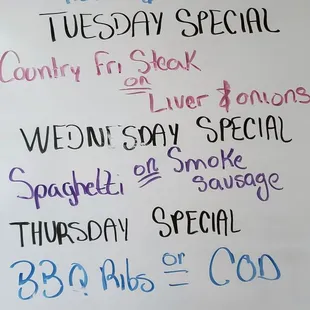 TUESDAY SPECIAL
Country Fri Steak
or
Liver & onions
WEDNESDAY SPECIAL
Spaghetti or Smoke
sausage
THURSDAY SPECIAL
BBQ Ribs or COD